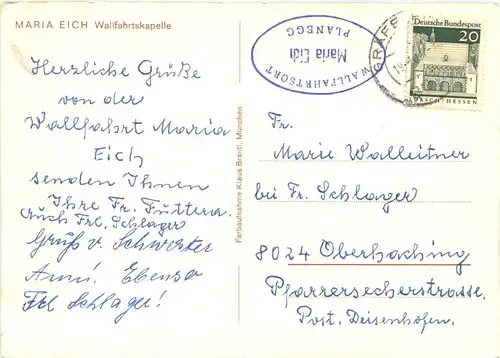 MARIA EICH Wallfahrtskapelle
Herzliche Grüße
von der
Wallfahrt Maria
Eich
senden Ihnen
Ihre Fr. Futtera.
Auch Frl. Schlager
Gruß v. Schwester
Anni. Ebenso
Frl Schlager!
Farbaufnahme Klaus Brantl, München
WALLFAHRTSORT
Maria Eich
PLANEGG
GRÄFE
Deutsche Bundespost
20
LORSCH/HESSEN
Fr.
Marie Walleitner
bei Fr. Schlager
8024 Oberhaching
Pfarrersecherstrasse.
Post. Deisenhofen.